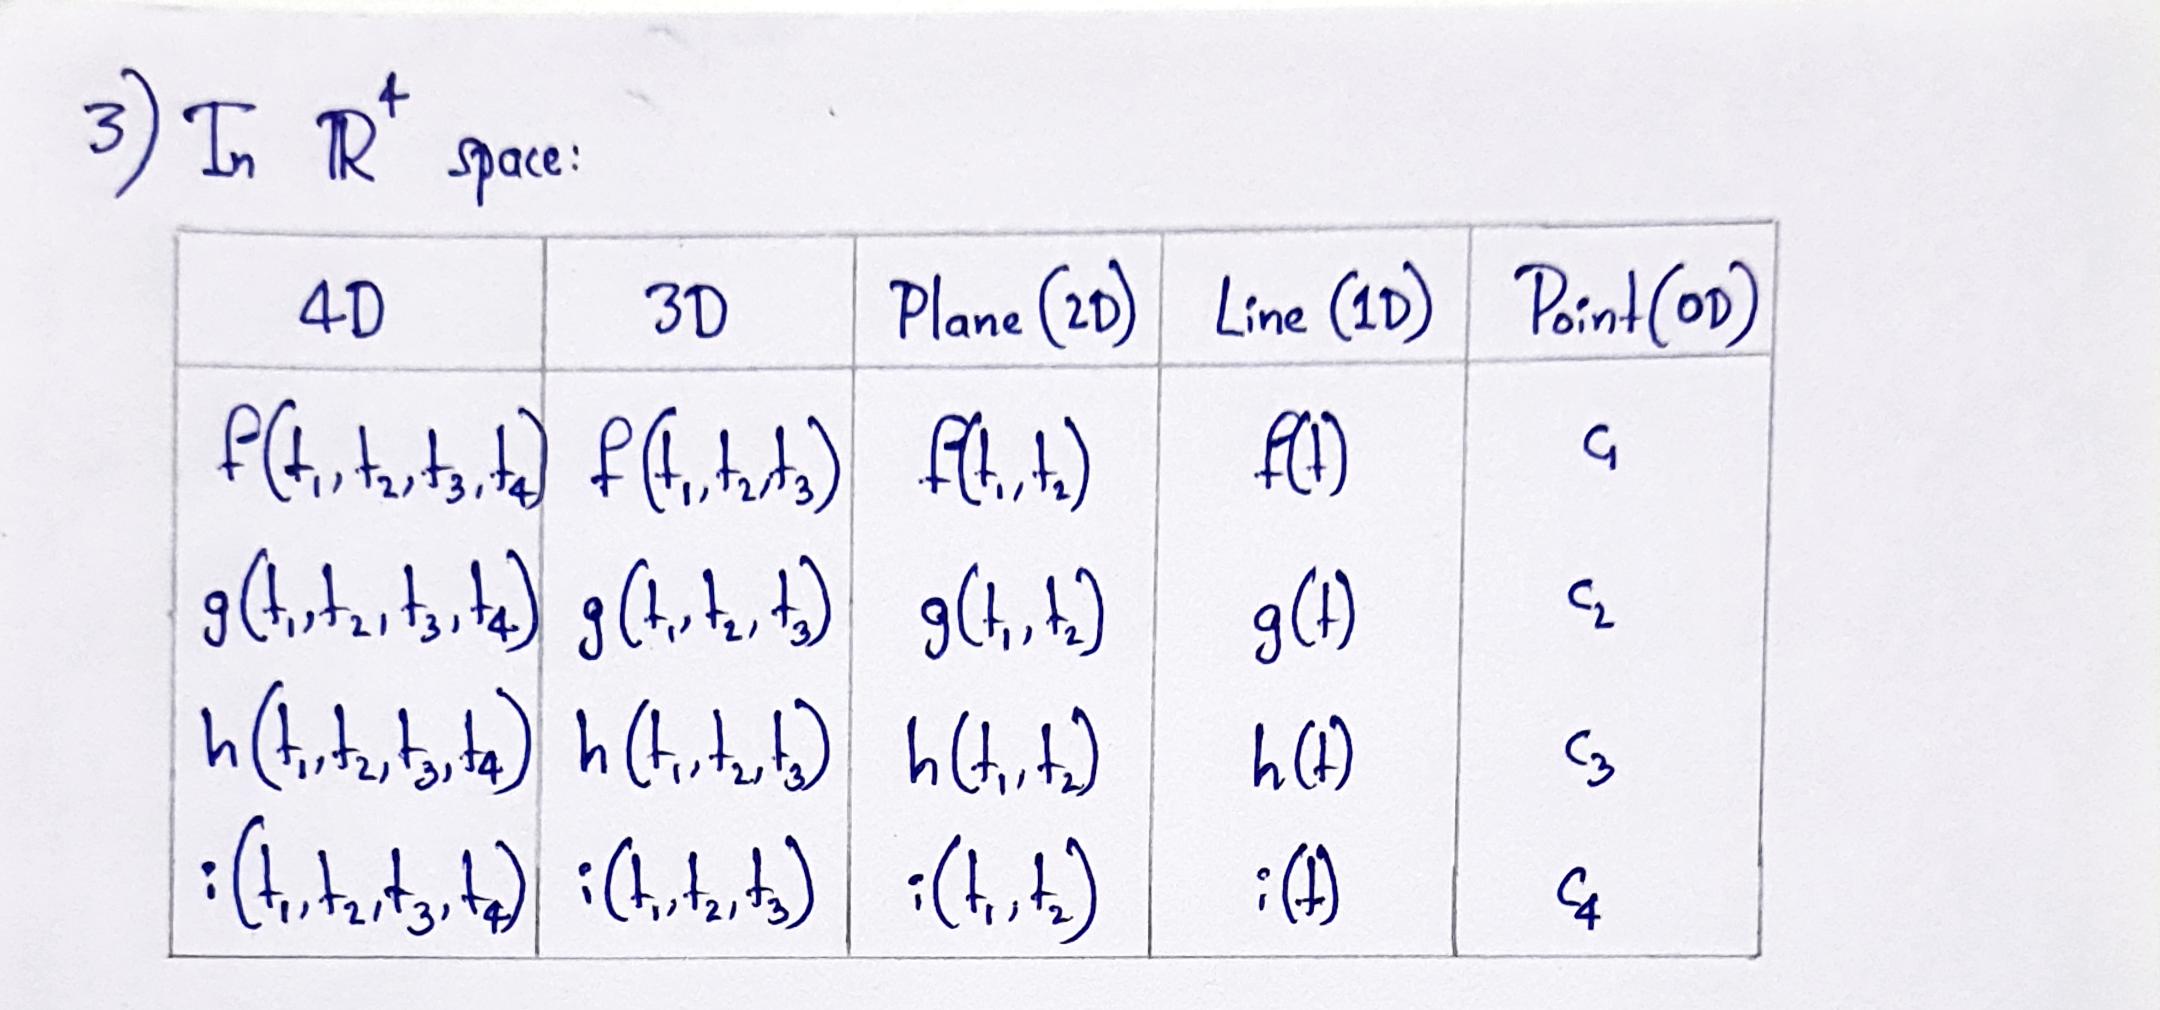 3) In ℝ⁴ space:
4D 3D Plane (2D) Line (1D) Point (0D)
f(t₁, t₂, t₃, t₄) f(t₁, t₂, t₃) f(t₁, t₂) f(t) c₁
g(t₁, t₂, t₃, t₄) g(t₁, t₂, t₃) g(t₁, t₂) g(t) c₂
h(t₁, t₂, t₃, t₄) h(t₁, t₂, t₃) h(t₁, t₂) h(t) c₃
i(t₁, t₂, t₃, t₄) i(t₁, t₂, t₃) i(t₁, t₂) i(t) c₄